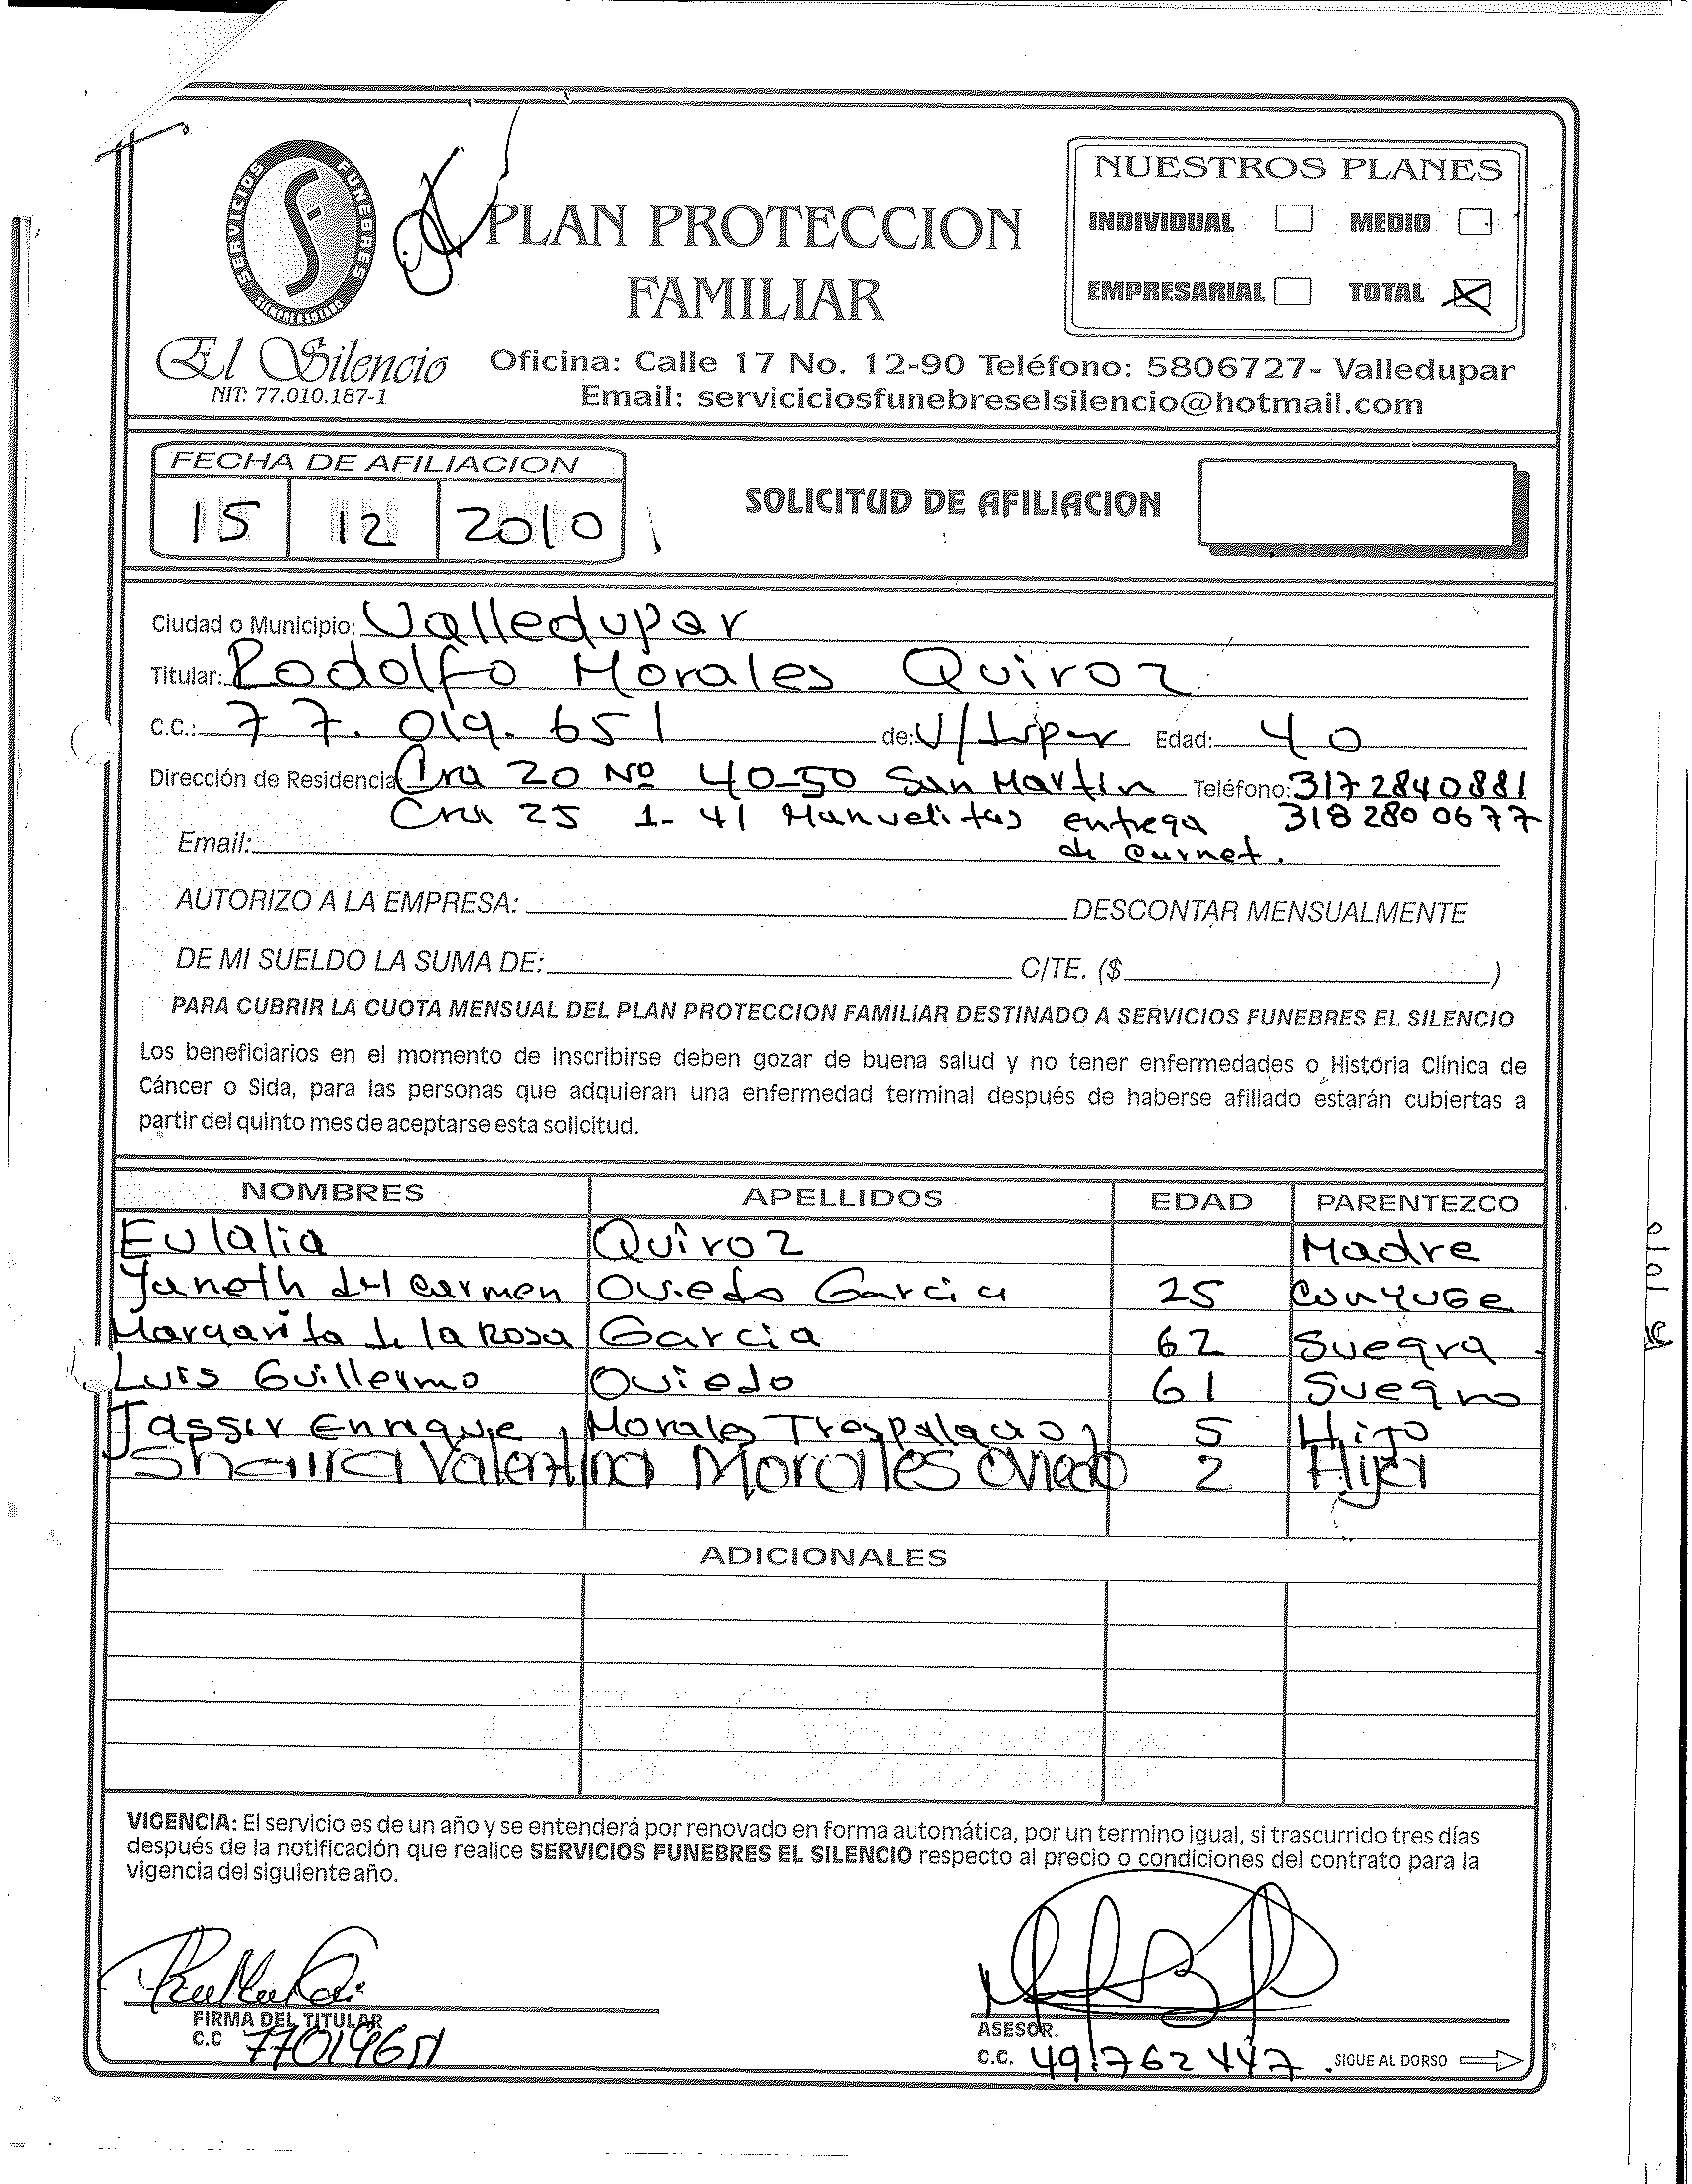 NUESTROS PLANES
INDIVIDUAL MEDIO
EMPRESARIAL TOTAL X
SERVICIOS FUNEBRES
PLAN PROTECCION
FAMILIAR
El Silencio
NIT: 77.010.187-1
Oficina: Calle 17 No. 12-90 Teléfono: 5806727- Valledupar
Email: serviciciosfunebreselsilencio@hotmail.com
FECHA DE AFILIACION
15 12 2010
SOLICITUD DE AFILIACION
Ciudad o Municipio: Valledupar
Titular: Rodolfo Morales Quiroz
C.C.: 77.019.651 de: V/dupar Edad: 40
Dirección de Residencia Cra 20 Nº 40-50 San Martin Teléfono: 317 2840881
Cra 25 1-41 Manuelitas entrega 318 280 0677
Email: de Carnet.
AUTORIZO A LA EMPRESA: DESCONTAR MENSUALMENTE
DE MI SUELDO LA SUMA DE: C/TE. ($ )
PARA CUBRIR LA CUOTA MENSUAL DEL PLAN PROTECCION FAMILIAR DESTINADO A SERVICIOS FUNEBRES EL SILENCIO
Los beneficiarios en el momento de inscribirse deben gozar de buena salud y no tener enfermedades o Historia Clínica de
Cáncer o Sida, para las personas que adquieran una enfermedad terminal después de haberse afiliado estarán cubiertas a
partir del quinto mes de aceptarse esta solicitud.
NOMBRES APELLIDOS EDAD PARENTEZCO
Eulalia Quiroz Madre
Yaneth del Carmen Oviedo Garcia 25 Conyuge
Margarita de la Rosa Garcia 62 Suegra
Luis Guillermo Oviedo 61 Suegro
Jassir Enrique Morales Trespalacios 5 Hijo
Shaira Valentina Morales Oviedo 2 Hija
ADICIONALES
VIGENCIA: El servicio es de un año y se entenderá por renovado en forma automática, por un termino igual, si trascurrido tres días
después de la notificación que realice SERVICIOS FUNEBRES EL SILENCIO respecto al precio o condiciones del contrato para la
vigencia del siguiente año.
FIRMA DEL TITULAR
C.C 77019651
ASESOR.
C.C. 49.762447 SIGUE AL DORSO